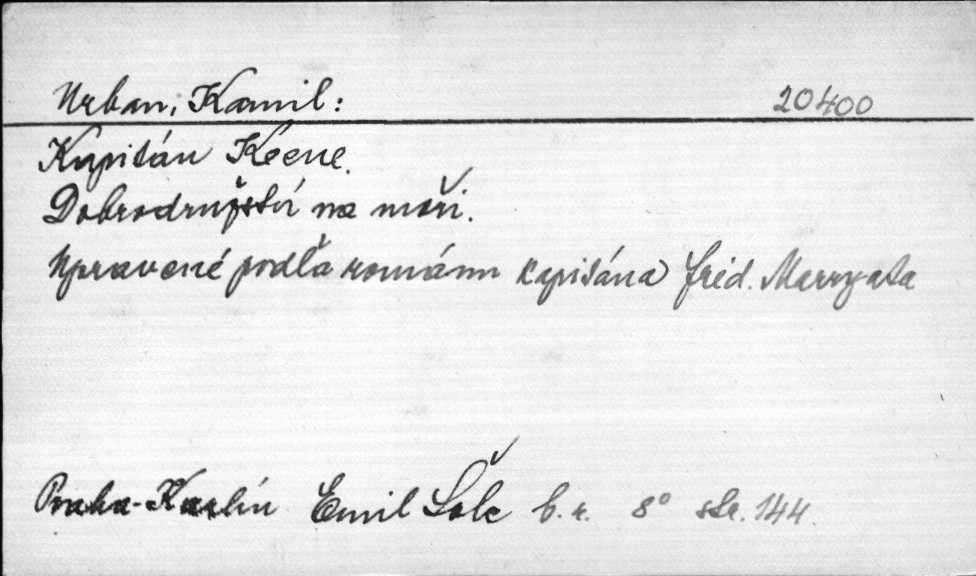 Urban, Kamil: 20400
Kapitán Keene.
Dobrodružství na moři.
Upravené podľa románu kapitána Fréd. Marryata
Praha-Karlín Emil Šolc b.r. 8° str. 144